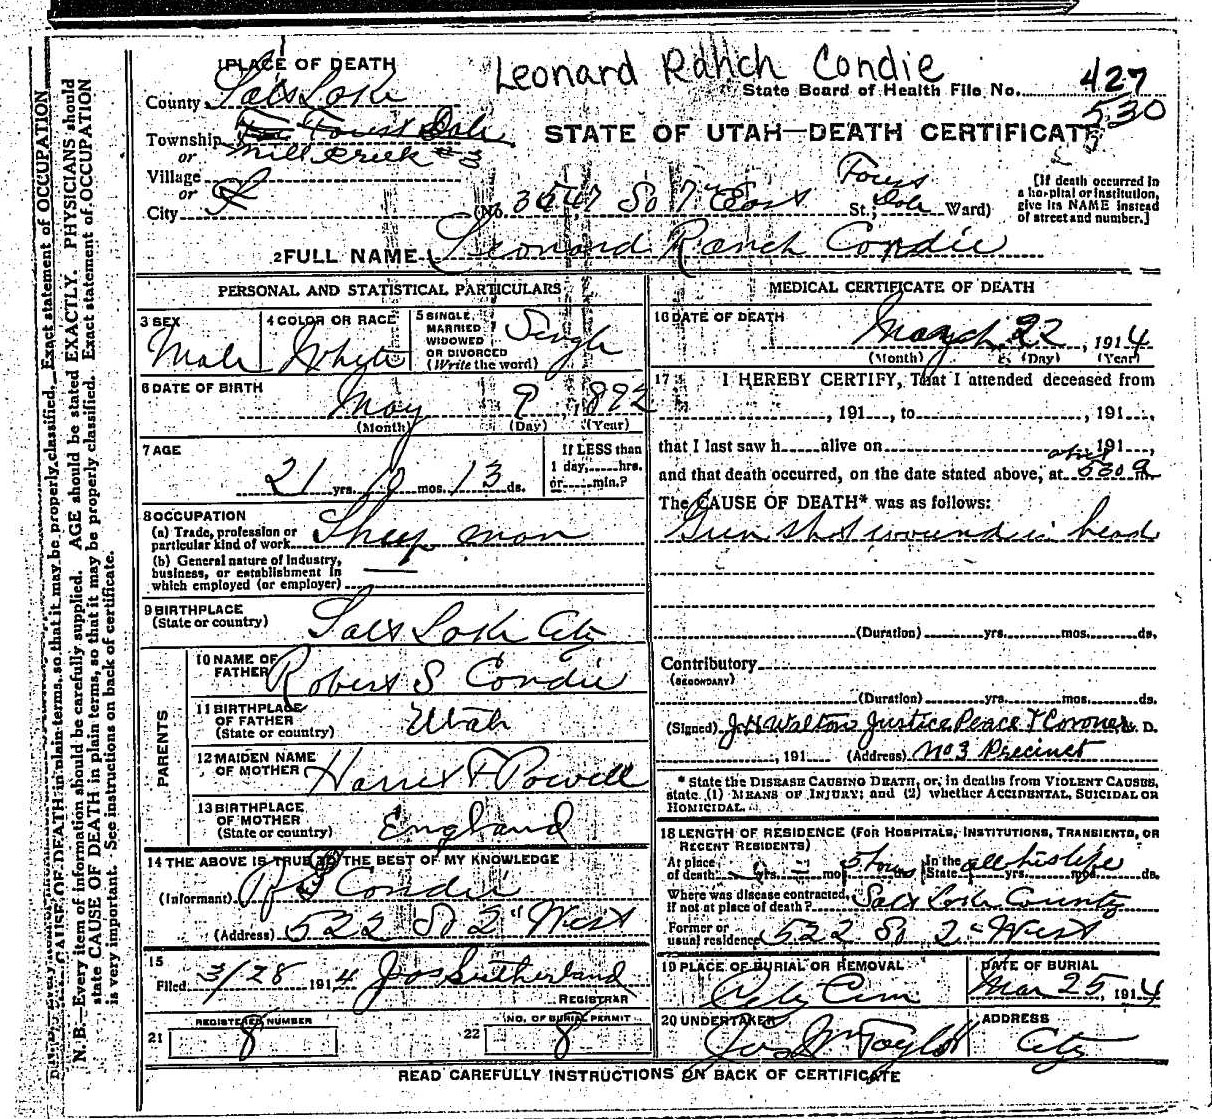 Leonard Ranch Condie
1 PLACE OF DEATH
State Board of Health File No. 427
530
County Salt Lake
STATE OF UTAH—DEATH CERTIFICATE
Township Forest Dale
or Mill Creek #3
Village
or
City
(No. 3547 So 7" East St.; Forest Dale Ward)
[If death occurred in
a hospital or institution,
give its NAME instead
of street and number.]
2 FULL NAME Leonard Ranch Condie
PERSONAL AND STATISTICAL PARTICULARS
3 SEX Male
4 COLOR OR RACE Whyte
5 SINGLE,
MARRIED
WIDOWED
OR DIVORCED
(Write the word) Single
6 DATE OF BIRTH
May 9, 1892
(Month) (Day) (Year)
7 AGE
21 yrs. 10 mos. 13 ds.
If LESS than
1 day, hrs.
or min.?
8 OCCUPATION
(a) Trade, profession or
particular kind of work Sheep man
(b) General nature of industry,
business, or establishment in
which employed (or employer)
9 BIRTHPLACE
(State or country) Salt Lake City
PARENTS
10 NAME OF
FATHER Robert S Condie
11 BIRTHPLACE
OF FATHER
(State or country) Utah
12 MAIDEN NAME
OF MOTHER Harriet F Powell
13 BIRTHPLACE
OF MOTHER
(State or country) England
14 THE ABOVE IS TRUE TO THE BEST OF MY KNOWLEDGE
(Informant) R S Condie
(Address) 522 So 2" West
15
Filed 3/28 1914 Jos Sutherland
REGISTRAR
21 REGISTERED NUMBER 8
22 NO. OF BURIAL PERMIT 8
MEDICAL CERTIFICATE OF DEATH
16 DATE OF DEATH
March 22, 1914
(Month) (Day) (Year)
17 I HEREBY CERTIFY, That I attended deceased from
, 191 , to , 191 ,
that I last saw h alive on , 191 ,
and that death occurred, on the date stated above, at about 530 a m.
The CAUSE OF DEATH* was as follows:
Gun shot wound in head
(Duration) yrs. mos. ds.
Contributory
(SECONDARY)
(Duration) yrs. mos. ds.
(Signed) J.H. Walton Justice Peace & Coroner M. D.
, 191 (Address) No 3 Precinct
* State the DISEASE CAUSING DEATH, or, in deaths from VIOLENT CAUSES,
state (1) MEANS OF INJURY; and (2) whether ACCIDENTAL, SUICIDAL OR
HOMICIDAL.
18 LENGTH OF RESIDENCE (FOR HOSPITALS, INSTITUTIONS, TRANSIENTS, OR
RECENT RESIDENTS)
At place
of death yrs. mos. 5 hours In the
State all his life yrs. mos. ds.
Where was disease contracted,
if not at place of death? Salt Lake County
Former or
usual residence 522 So 2" West
19 PLACE OF BURIAL OR REMOVAL
City Cem
DATE OF BURIAL
Mar 25, 1914
20 UNDERTAKER
Jos Wm Taylor
ADDRESS
City
READ CAREFULLY INSTRUCTIONS ON BACK OF CERTIFICATE
N. B.—Every item of information should be carefully supplied. AGE should be stated EXACTLY. PHYSICIANS should
state CAUSE OF DEATH in plain terms, so that it may be properly classified. Exact statement of OCCUPATION
is very important. See instructions on back of certificate.
CAUSE OF DEATH in plain terms, so that it may be properly classified. Exact statement of OCCUPATION